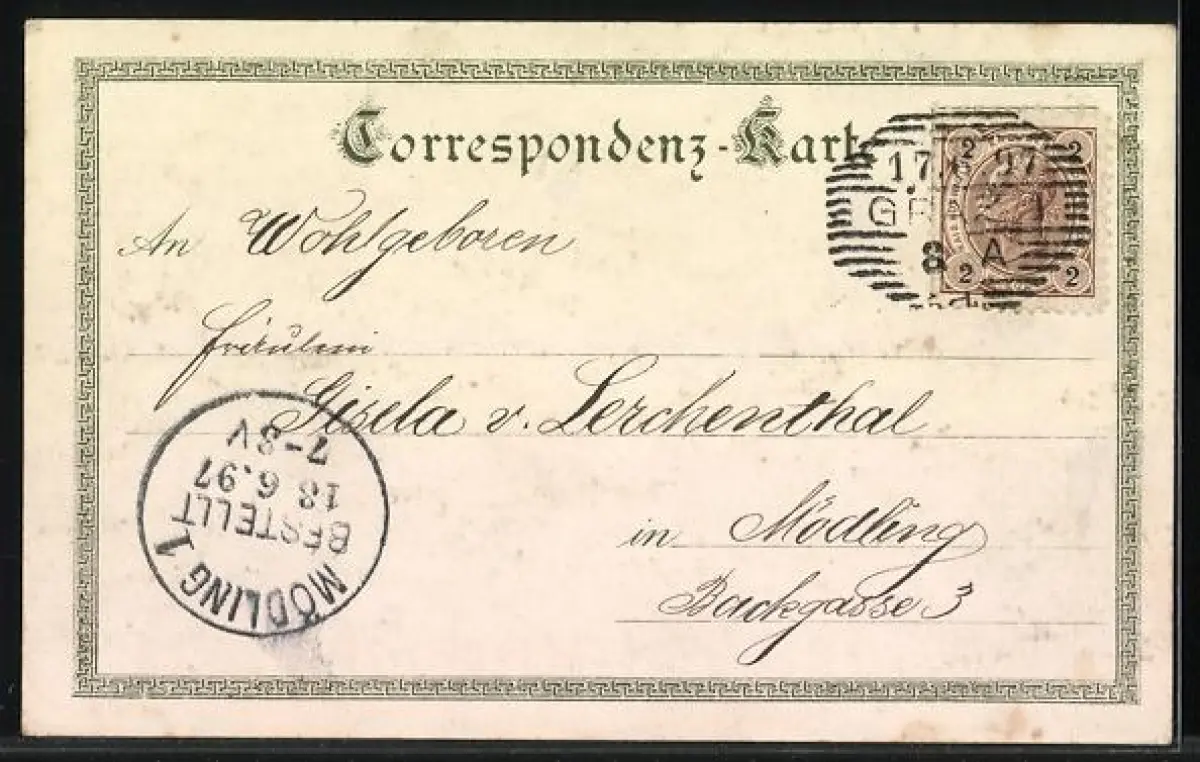 Correspondenz-Karte
17 6 97
GRAZ 1
8 A
2 2
2 2
An Wohlgeboren
Fräulein
Gisela v. Lerchenthal
in Mödling
Bachgasse 3
MÖDLING 1
BESTELLT
18 6.97
7-8V